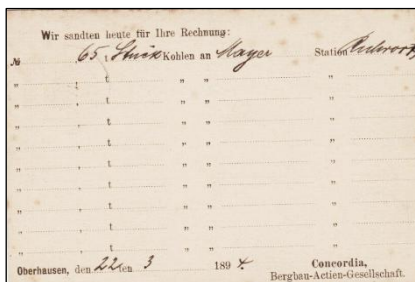 Wir sandten heute für Ihre Rechnung:
№ 65 t Stück Kohlen an Mayer Station Ruhrort
„ , t „ „ „
„ , t „ „ „
„ , t „ „ „
„ , t „ „ „
„ , t „ „ „
„ , t „ „ „
„ , t „ „ „
„ , t „ „ „
Oberhausen, den 22ten 3 1894. Concordia,
Bergbau-Actien-Gesellschaft.